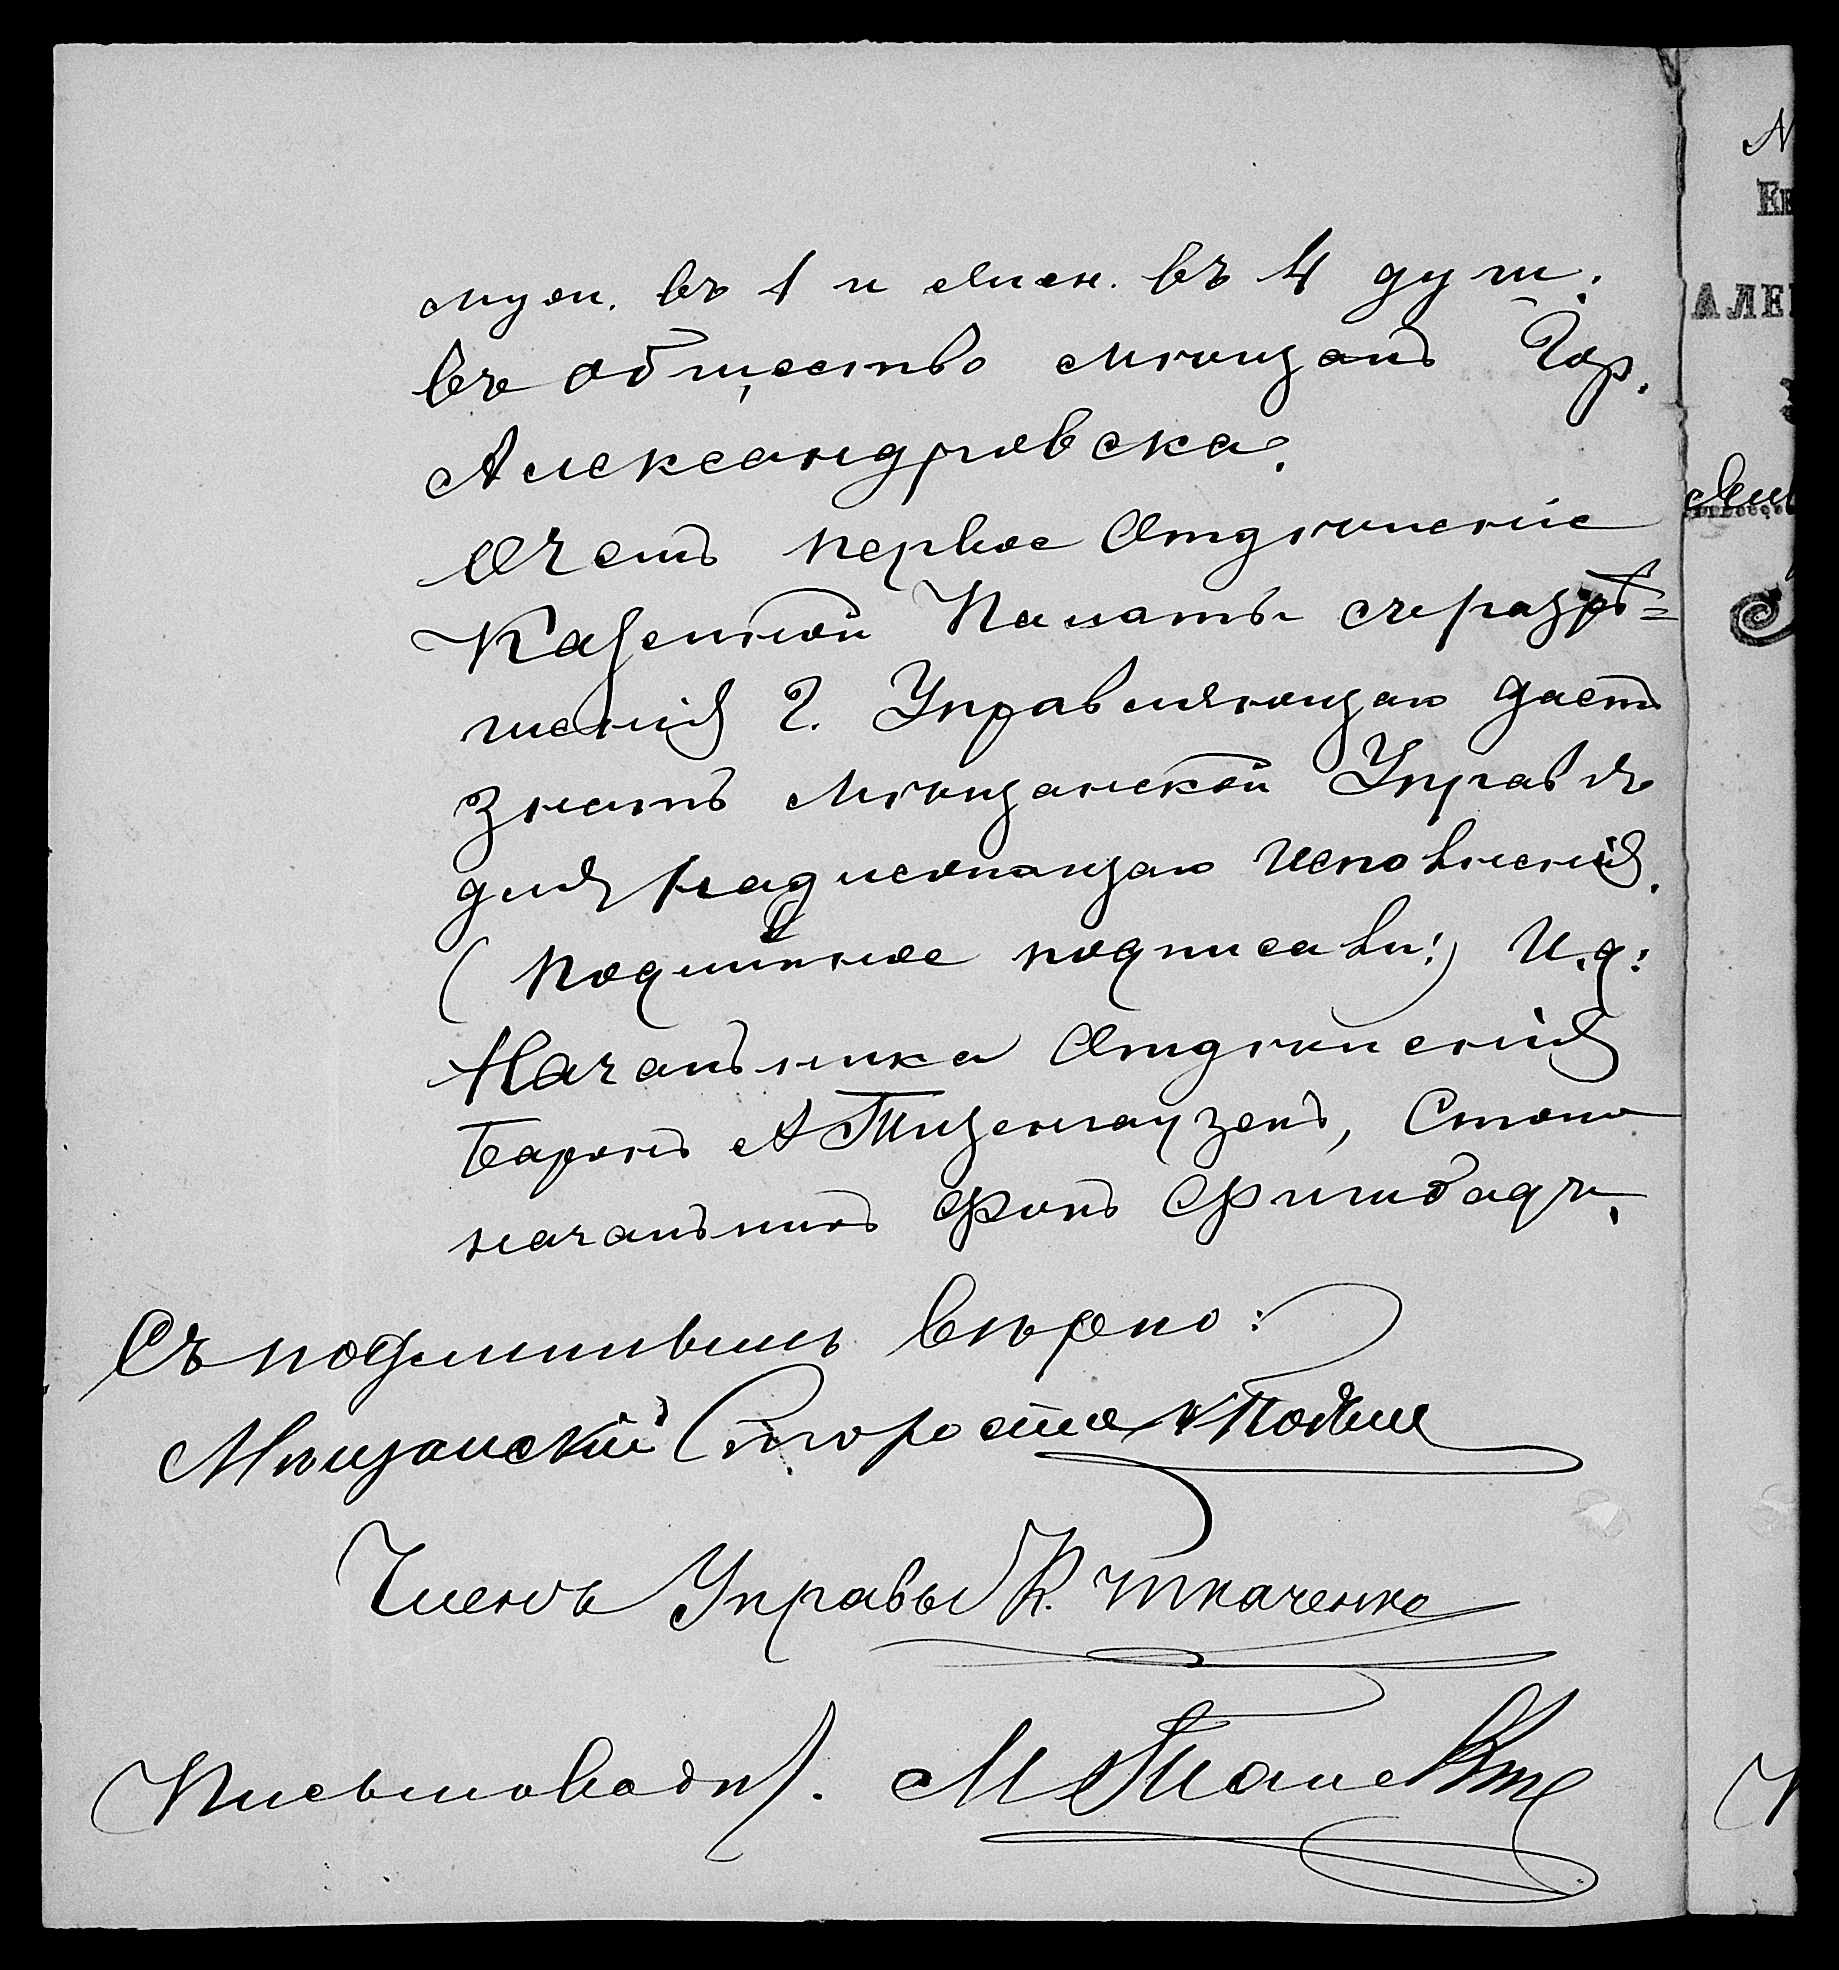 муж. въ 1 и жен. въ 4 душ.
въ общество мѣщанъ Гор.
Александровска.
О чемъ первое Отдѣленіе
Казенной Палаты съ разрѣ=
шенія Г. Управляющаго даетъ
знать Мѣщанской Управѣ
для надлежащаго исполненія.
(Подлинное подписали:) И.д:
Начальника Отдѣленія
Баронъ А Тизенгаузенъ, Столо
начальникъ Фонъ
Съ подлиннымъ вѣрно:
Мѣщанскій Староста
Членъ Управы К. Ткаченко
Письмовод. М
N
АЛЕ